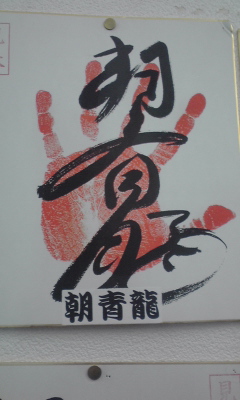 朝青龍
朝青龍